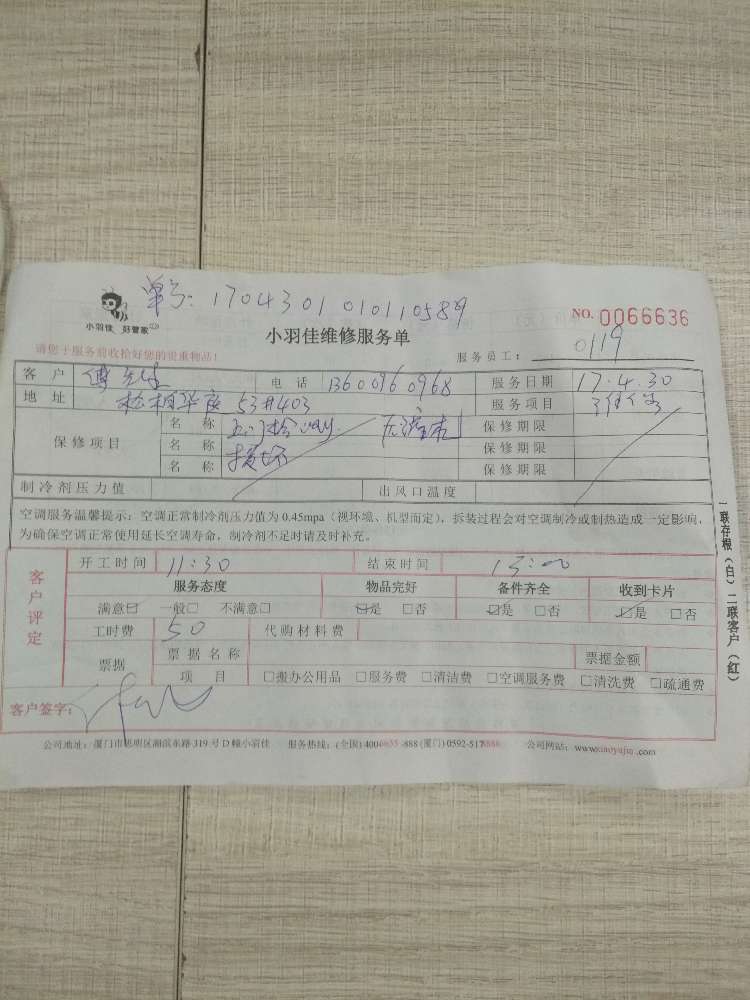 单号: 1704301010110589
小羽佳 好管家
小羽佳维修服务单
NO. 0066636
请您于服务前收拾好您的贵重物品!
服务员工: 0119
客户 傅先生 电话 13600960968 服务日期 17.4.30
地址 53#403 服务项目
保修项目
名称 保修期限
名称 损坏 保修期限
名称 保修期限
制冷剂压力值 出风口温度
空调服务温馨提示: 空调正常制冷剂压力值为 0.45mpa (视环境、机型而定), 拆装过程会对空调制冷或制热造成一定影响,
为确保空调正常使用延长空调寿命, 制冷剂不足时请及时补充。
客户评定
开工时间 11:30 结束时间
服务态度 物品完好 备件齐全 收到卡片
满意☑ 一般□ 不满意□ ☑是 □否 ☑是 □否 ☑是 □否
工时费 50 代购材料费
票据 票据名称 票据金额
项目 □搬办公用品 □服务费 □清洁费 □空调服务费 □清洗费 □疏通费
客户签字:
公司地址: 厦门市思明区湖滨东路 319 号 D 幢小羽佳 服务热线: (全国) 4006655-888 (厦门) 0592-5178888 公司网站: www.xiaoyujia.com
一联存根(白) 二联客户(红)